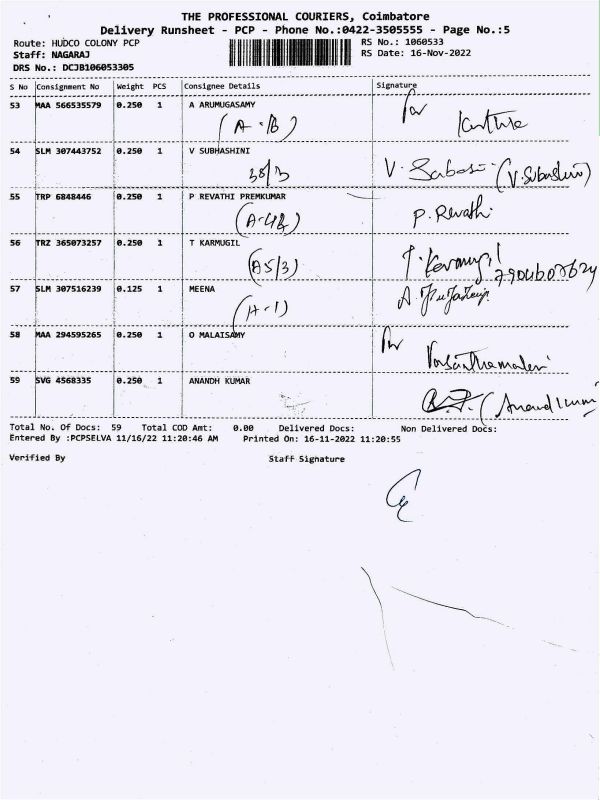 THE PROFESSIONAL COURIERS, Coimbatore
Delivery Runsheet - PCP - Phone No.:0422-3505555 - Page No.:5
Route: HUDCO COLONY PCP RS No.: 1060533
Staff: NAGARAJ RS Date: 16-Nov-2022
DRS No.: DCJB106053305
S No Consignment No Weight PCS Consignee Details Signature
53 MAA 566535579 0.250 1 A ARUMUGASAMY
54 SLM 307443752 0.250 1 V SUBHASHINI
38/3 (V.Subashini)
55 TRP 6848446 0.250 1 P REVATHI PREMKUMAR
P. Revathi
56 TRZ 365073257 0.250 1 T KARMUGIL
(A5/3) T. Karmugil
57 SLM 307516239 0.125 1 MEENA
(A-1)
58 MAA 294595265 0.250 1 O MALAISAMY
59 SVG 4568335 0.250 1 ANANDH KUMAR
(Anandkumar
Total No. Of Docs: 59 Total COD Amt: 0.00 Delivered Docs: Non Delivered Docs:
Entered By :PCPSELVA 11/16/22 11:20:46 AM Printed On: 16-11-2022 11:20:55
Verified By Staff Signature